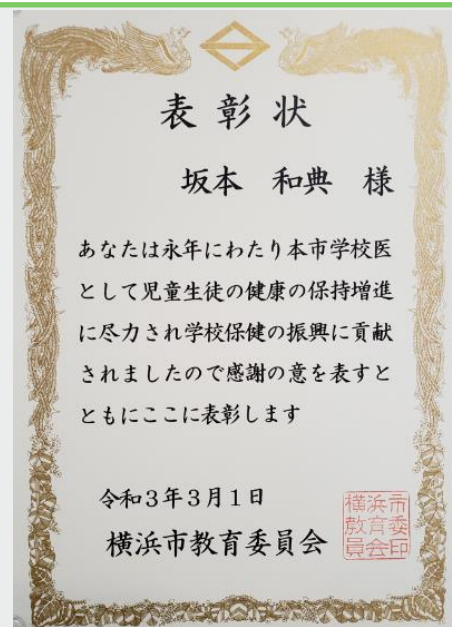 表彰状
坂本 和典 様
あなたは永年にわたり本市学校医
として児童生徒の健康の保持増進
に尽力され学校保健の振興に貢献
されましたので感謝の意を表すと
ともにここに表彰します
令和3年3月1日
横浜市教育委員会
横浜市
教育委
員会印